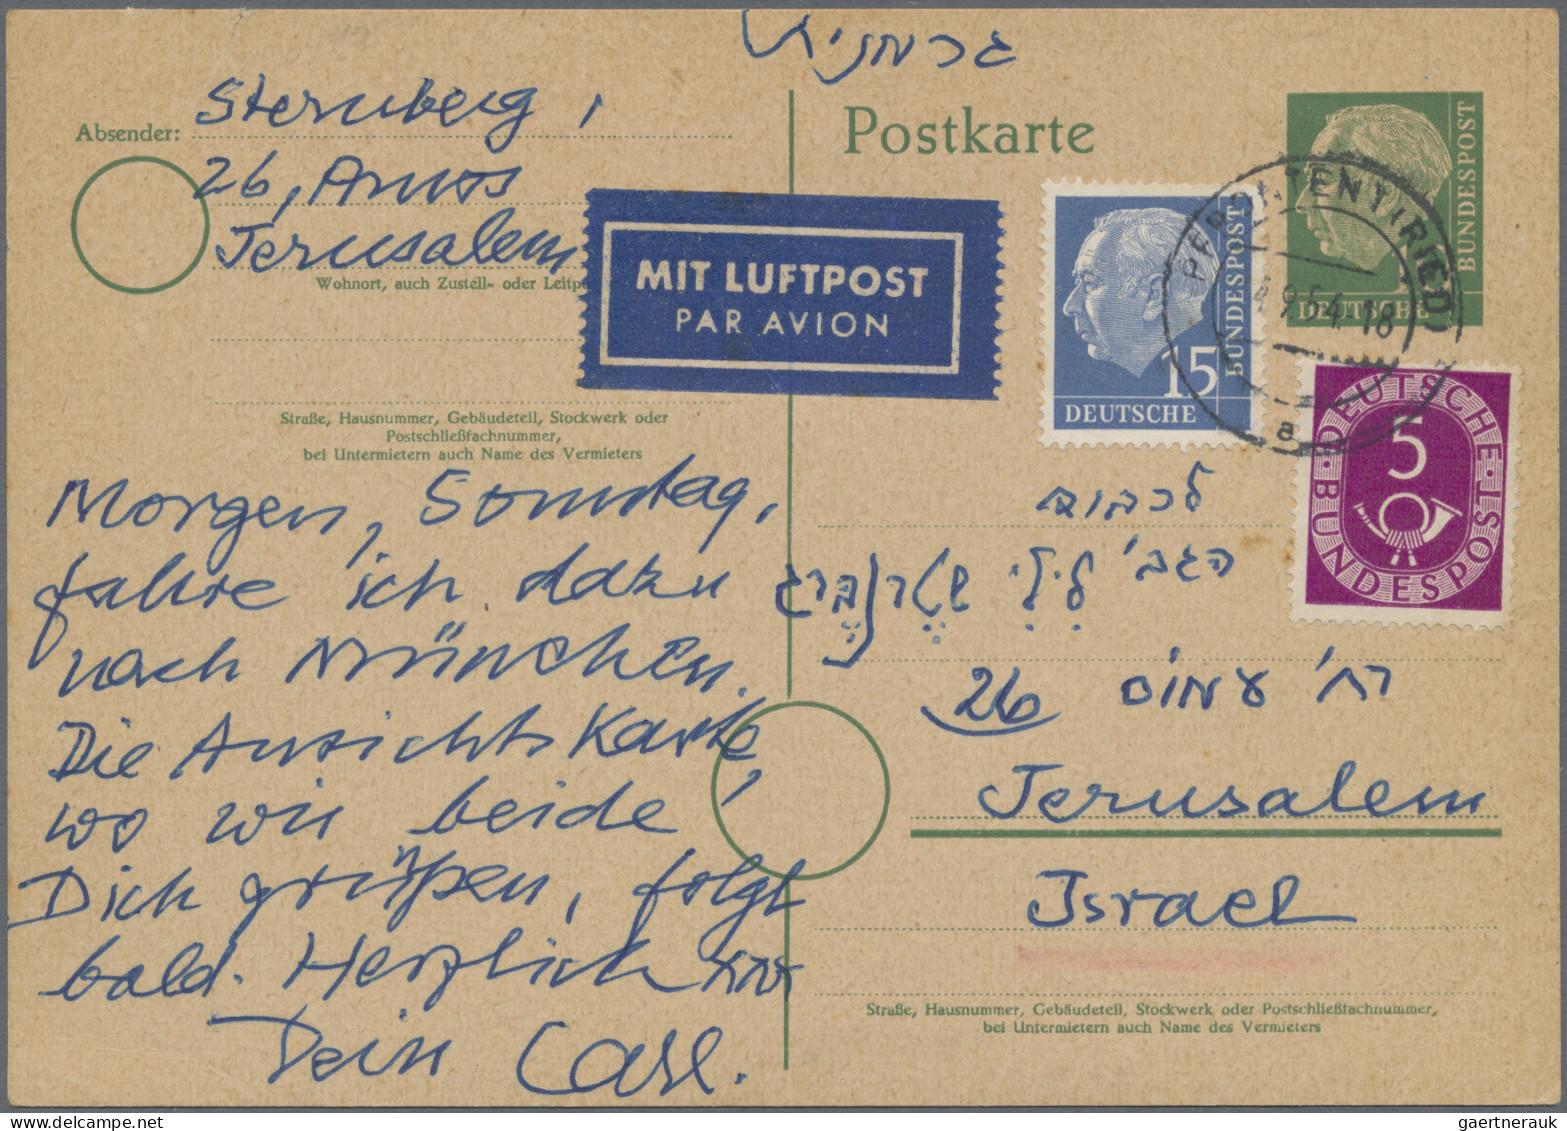 גרמניה
Absender: Sternberg,
26, Amos
Jerusalem
Wohnort, auch Zustell- oder Leitp
MIT LUFTPOST
PAR AVION
Straße, Hausnummer, Gebäudeteil, Stockwerk oder
Postschließfachnummer,
bei Untermietern auch Name des Vermieters
Morgen, Sonntag,
fahre ich dazu
nach München.
Die Ansichtskarte,
wo wir beide
Dich grüßen, folgt
bald. Herzlich
Dein Carl.
Postkarte
DEUTSCHE BUNDESPOST
15
DEUTSCHE BUNDESPOST
PFRONTEN (RIED)
9.54.18
a
5
DEUTSCHE BUNDESPOST
לכבוד
הגב' לילי שטרנברג
רח' עמוס 26
Jerusalem
Israel
Straße, Hausnummer, Gebäudeteil, Stockwerk oder Postschließfachnummer,
bei Untermietern auch Name des Vermieters
gaertnerauk @ delcampe.net